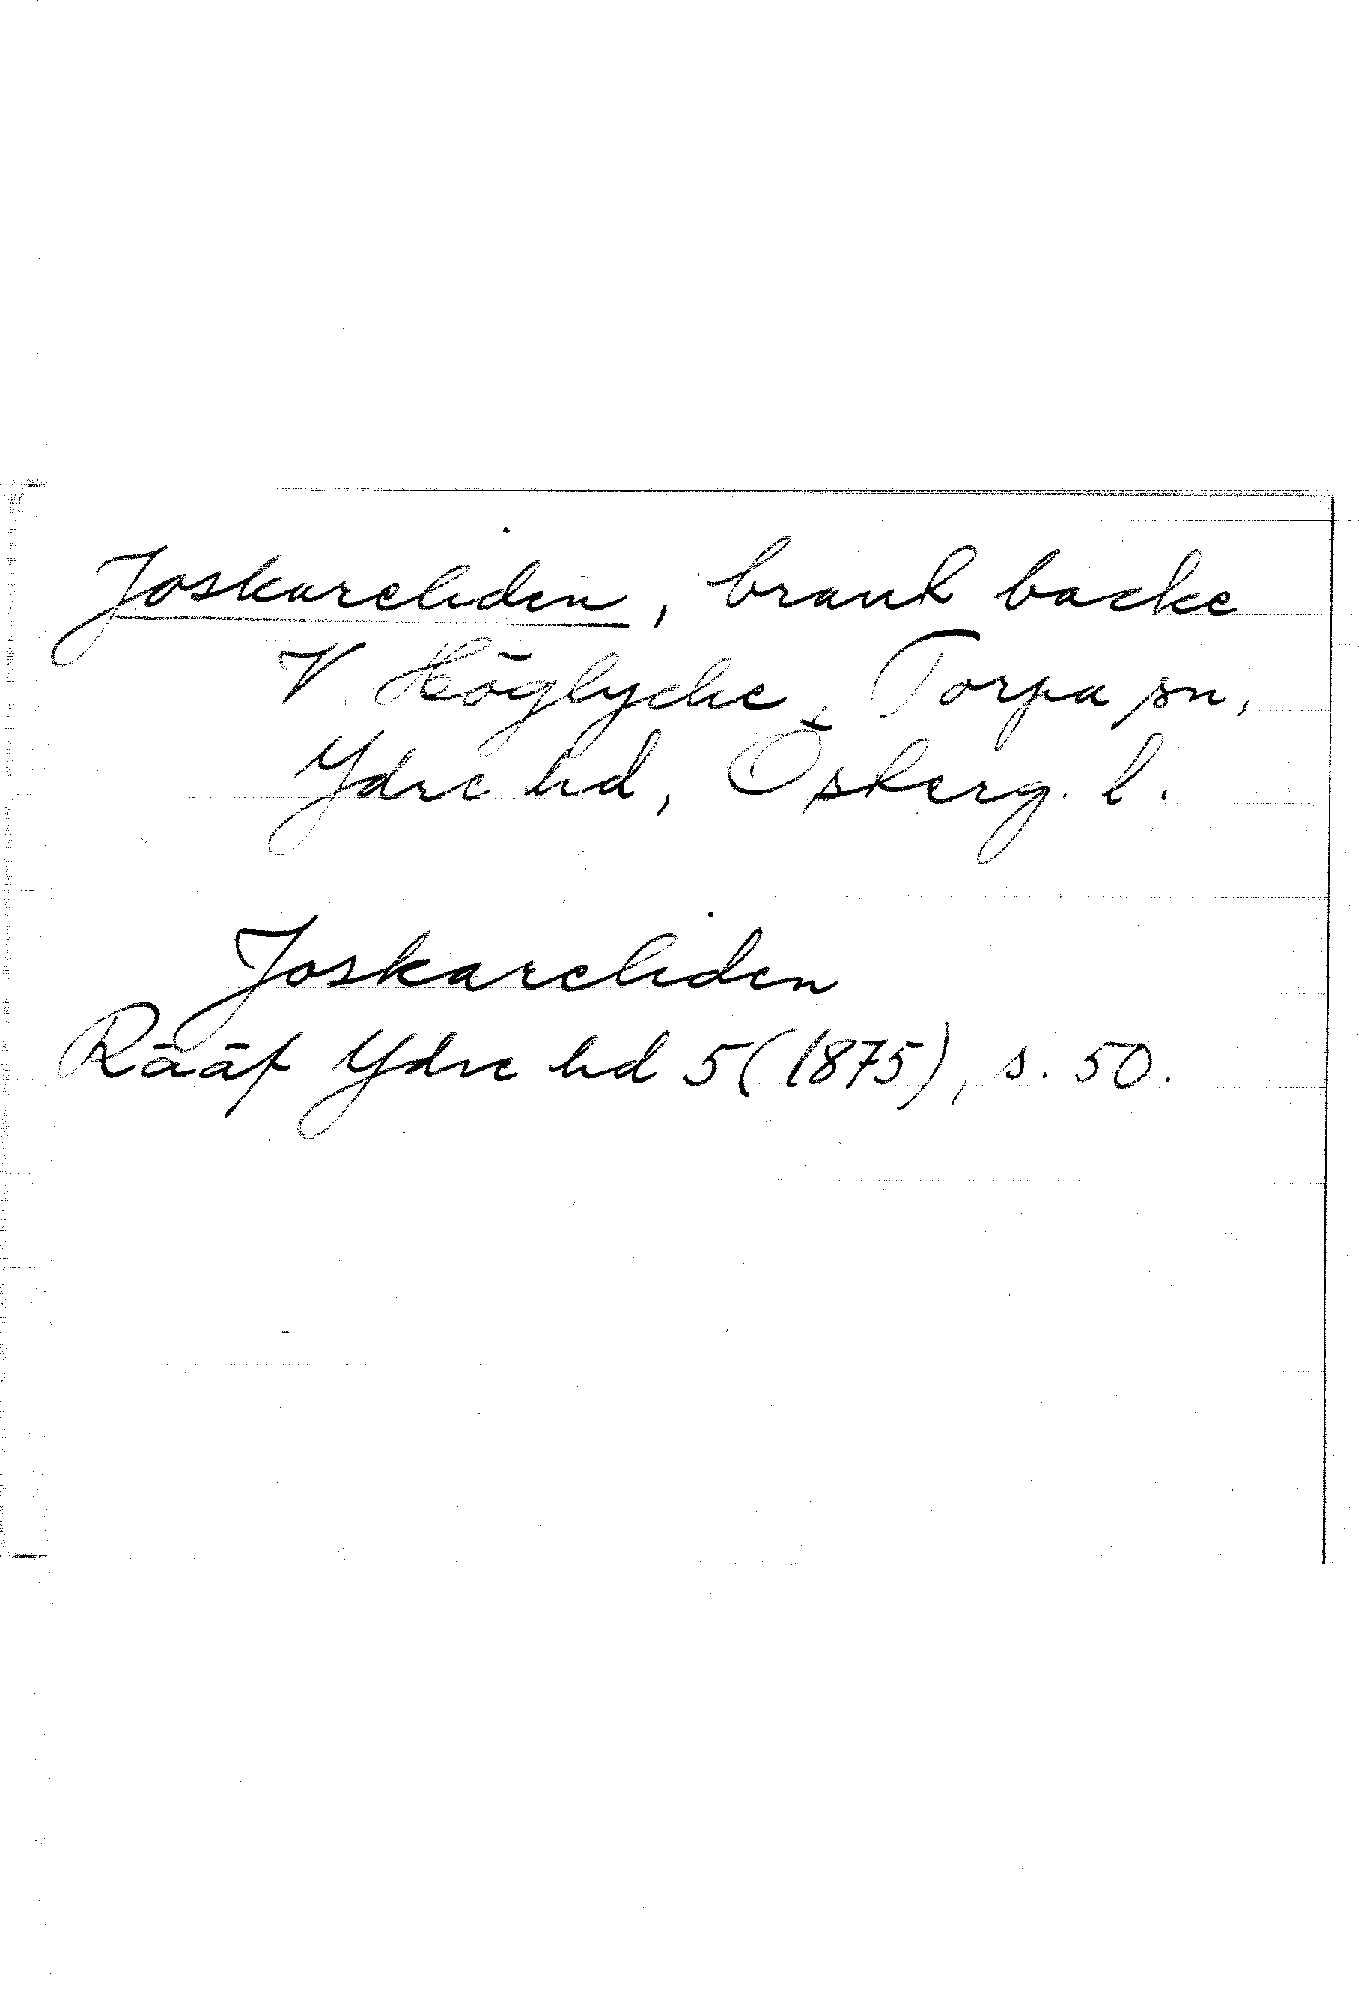 Joskareliden, brant backe
V. Höglycke, Torpa sn,
Ydre hd, Österg. l.
Joskareliden
Rääf Ydre hd 5 (1875), s. 50.